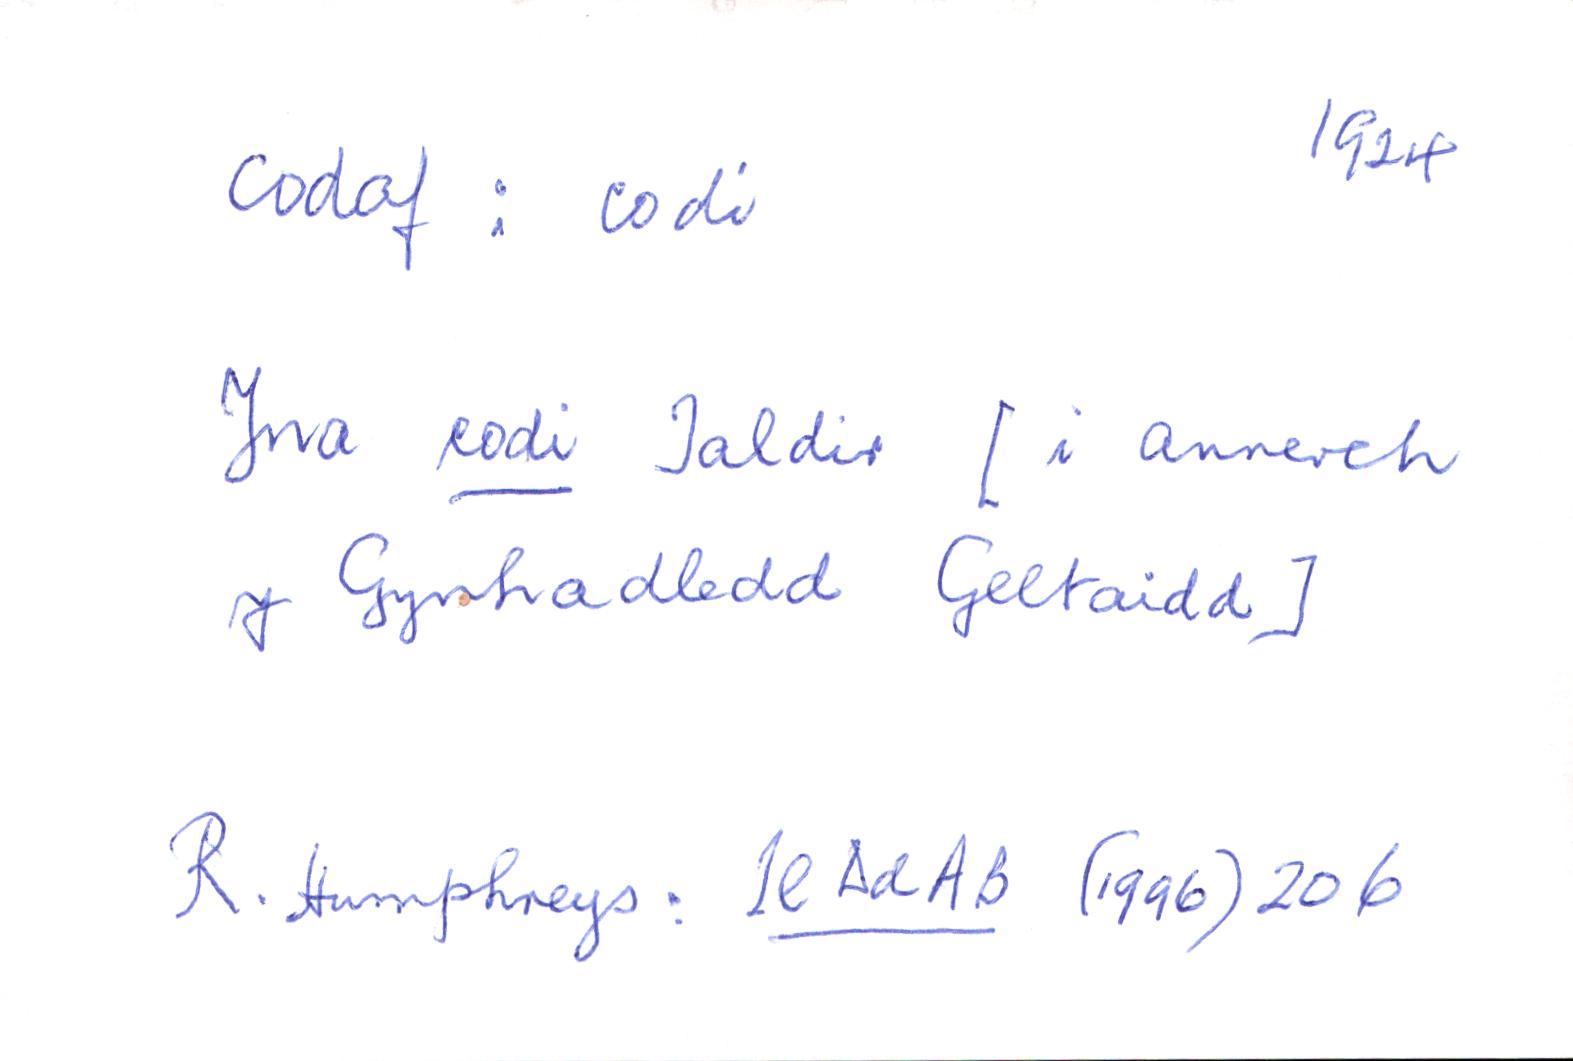 codaf : codi
1924
Yna codi Jaldir [ i annerch
y Gynhadledd Geltaidd ]
R. Humphreys: Ll DdAB (1996) 206